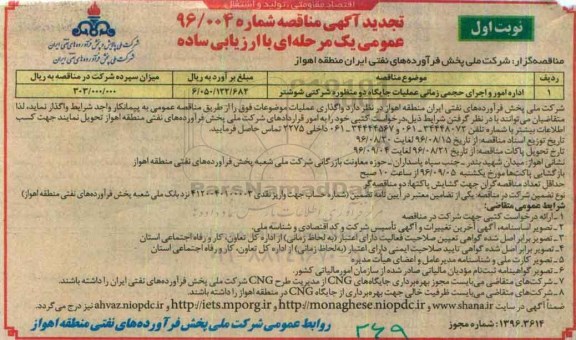 اقتصاد مقاومتی: تولید و اشتغال
نوبت اول
تجدید آگهی مناقصه شماره ۹۶/۰۰۴
عمومی یک مرحله‌ای با ارزیابی ساده
شرکت ملی پالایش و پخش فرآورده‌های نفتی ایران
شرکت ملی پخش فرآورده‌های نفتی ایران
مناقصه‌گزار: شرکت ملی پخش فرآورده‌های نفتی ایران منطقه اهواز
ردیف موضوع مناقصه مبلغ برآورد به ریال میزان سپرده شرکت در مناقصه به ریال
۱ اداره امور و اجرای حجمی زمانی عملیات جایگاه دو منظوره شرکتی شوشتر ۶/۰۵۰/۱۲۲/۶۸۲ ۳۰۳/۰۰۰/۰۰۰
شرکت ملی پخش فرآورده‌های نفتی ایران منطقه اهواز در نظر دارد واگذاری عملیات موضوعات فوق را از طریق مناقصه عمومی به پیمانکار واجد شرایط واگذار نماید، لذا
متقاضیان می‌توانند با در نظر گرفتن شرایط ذیل، درخواست کتبی خود را به امور قراردادهای شرکت ملی پخش فرآورده‌های نفتی منطقه اهواز تحویل نمایند جهت کسب
اطلاعات بیشتر با شماره تلفن ۳۴۴۴۸۰۷۲-۰۶۱ و ۳۴۴۴۴۵۶۷-۰۶۱ داخلی ۲۲۷۵ تماس حاصل فرمایید.
تاریخ توزیع اسناد مناقصه: از تاریخ ۹۶/۰۸/۱۵ لغایت ۹۶/۰۸/۲۰
تاریخ تحویل پاکات مناقصه: از تاریخ ۹۶/۰۸/۲۱ لغایت ۹۶/۰۹/۰۴
نشانی: اهواز- میدان شهید بندر - جنب سپاه پاسداران - حوزه معاونت بازرگانی شرکت ملی شعبه پخش فرآورده‌های نفتی منطقه اهواز
بازگشایی پاکت‌ها مورخ یکشنبه ۹۶/۰۹/۰۵ ساعت ۱۰ صبح
حداقل تعداد مناقصه گران جهت گشایش پاکتها: دو مناقصه‌گر
نوع تضمین شرکت در مناقصه: یکی از تضامین معتبر در آیین نامه تضمین (شماره حساب جهت واریز نقدی نزد بانک ملی شعبه پخش فرآورده‌های نفتی منطقه اهواز)
شرایط عمومی متقاضی:
۱-ارائه درخواست کتبی جهت شرکت در مناقصه
۲-تصویر اساسنامه، آگهی آخرین تغییرات و آگهی تأسیس شرکت و کد اقتصادی و شناسه ملی.
۳-تصویر برابر اصل شده گواهی تعیین صلاحیت فعالیت دارای اعتبار (به لحاظ زمانی) از اداره کل تعاون، کار و رفاه اجتماعی استان
۴-تصویر برابر اصل شده گواهی تایید صلاحیت ایمنی دارای اعتبار (به لحاظ زمانی) از اداره کل تعاون، کار و رفاه اجتماعی استان
۵-تصویر کارت ملی و شناسنامه مدیرعامل و اعضای هیأت مدیره
۶-تصویر گواهینامه ثبت‌نام مؤدیان مالیاتی صادر شده از سازمان امور مالیاتی کشور.
۷-شرکت‌های متقاضی می‌بایست مجوز بهره‌برداری جایگاه‌های CNG از مدیریت طرح CNG شرکت ملی پخش فرآورده‌های نفتی ایران را داشته باشند.
۸-شرکت‌های متقاضی می‌بایست ظرفیت خالی جهت بهره‌برداری از جایگاه CNG در منطقه اهواز را داشته باشند.
ضمنا آگهی در سایت www.shana.ir و http://monaghese.niopdc.ir و http://iets.mporg.ir و ahvaz.niopdc.ir نیز درج می‌گردد.
شماره مجوز: ۱۳۹۶.۳۶۱۴
۲۶۹
روابط عمومی شرکت ملی پخش فرآورده‌های نفتی منطقه اهواز